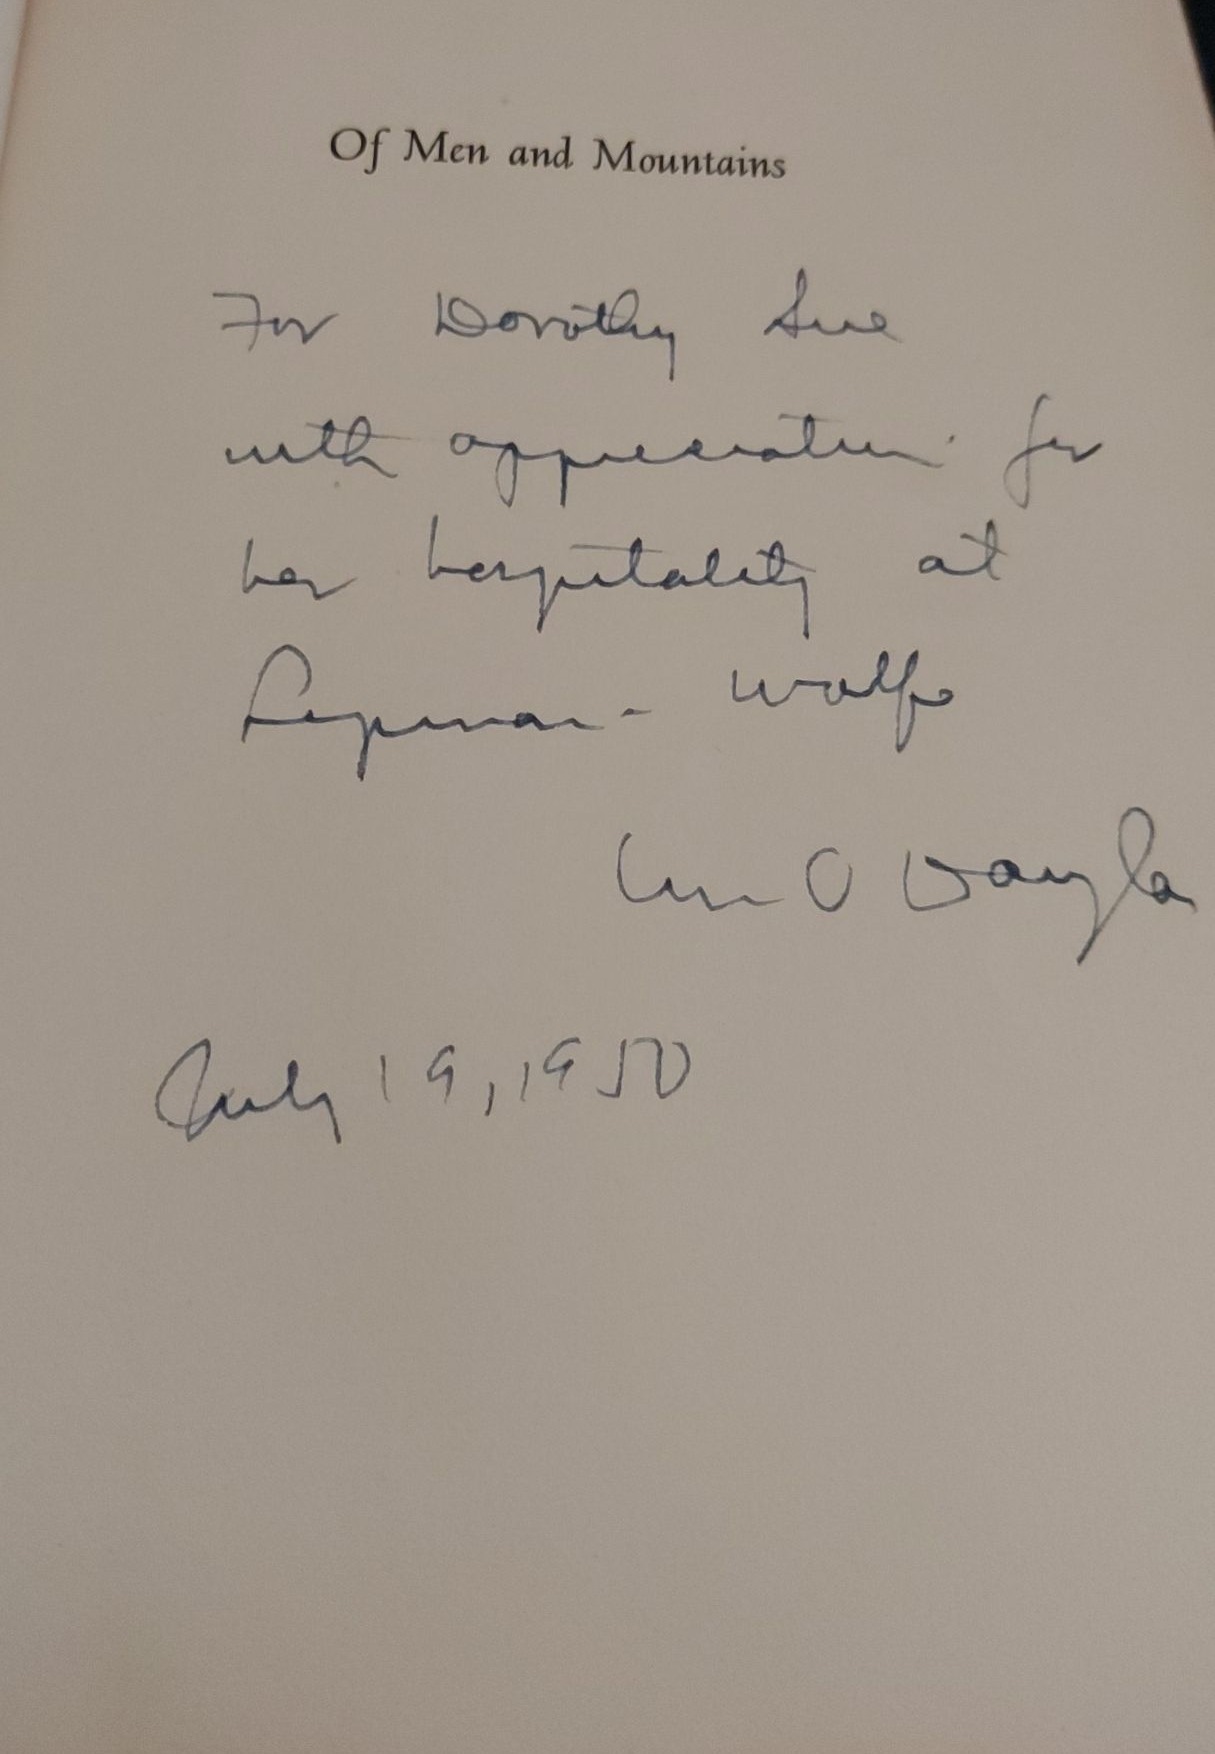 Of Men and Mountains
For Dorothy Sue
with appreciation for
her hospitality at
Lipman - Wolfe
Wm O Douglas
July 19, 1950